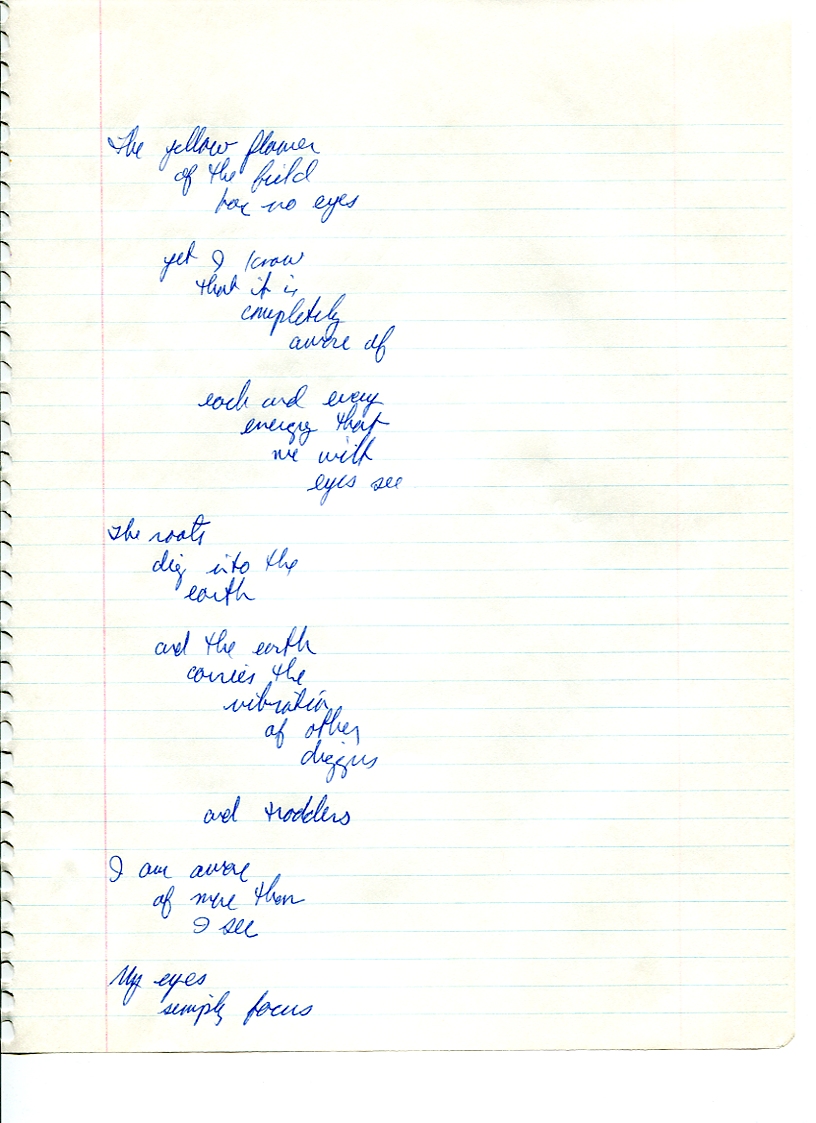 The yellow flower
of the field
has no eyes
yet I know
that it is
completely
aware of
each and every
energy that
we with
eyes see
The roots
dig into the
earth
and the earth
carries the
vibration
of other
diggers
and trodders
I am aware
of more than
I see
My eyes
simply focus